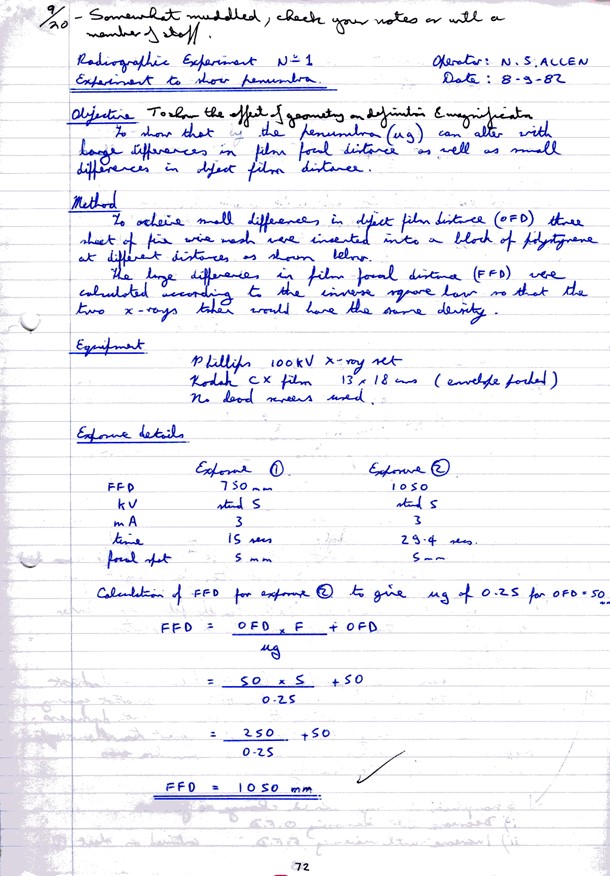 9/20 - Somewhat muddled, check your notes or with a
member of staff.
Radiographic Experiment No 1 Operator: N.S. ALLEN
Experiment to show penumbra. Date: 8-9-82
Objective To show the effect of geometry on definition & magnification
To show that the penumbra (ug) can alter with
large differences in film focal distance as well as small
differences in object film distance.
Method
To acheive small differences in object film distance (OFD) three
sheet of fine wire mesh were inserted into a block of polystyrene
at different distances as shown below.
The large differences in film focal distance (FFD) were
calculated according to the inverse square law so that the
two x-rays taken would have the same density.
Equipment
Phillips 100KV X-ray set
Kodak CX film 13 x 18 cms (envelope packed)
No lead screens used.
Exposure details
Exposure ① Exposure ②
FFD 750 mm 1050
kV stud 5 stud 5
mA 3 3
time 15 secs 29.4 secs.
focal spot 5 mm 5 mm
Calculation of FFD for exposure ② to give ug of 0.25 for OFD = 50 mm
FFD = OFD x F + OFD
ug
= 50 x 5 + 50
0.25
= 250 + 50
0.25
FFD = 1050 mm
72